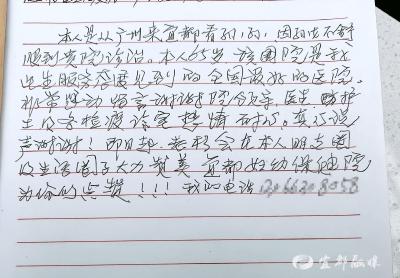 本人是从广州来宜都看朋友的，因身体不舒
服到贵院诊治。本人65岁，该医院是我
出生服务态度见到的全国最好的医院。
非常感动。特言谢谢院领导、医生、防护
士及各检疫诊室热情对待。真心说
声谢谢！即日起，老杨会在本人朋友圈
及生活圈子大力赞美宜都妇幼保健院
为你们点赞！！！我的电话
宜都融媒